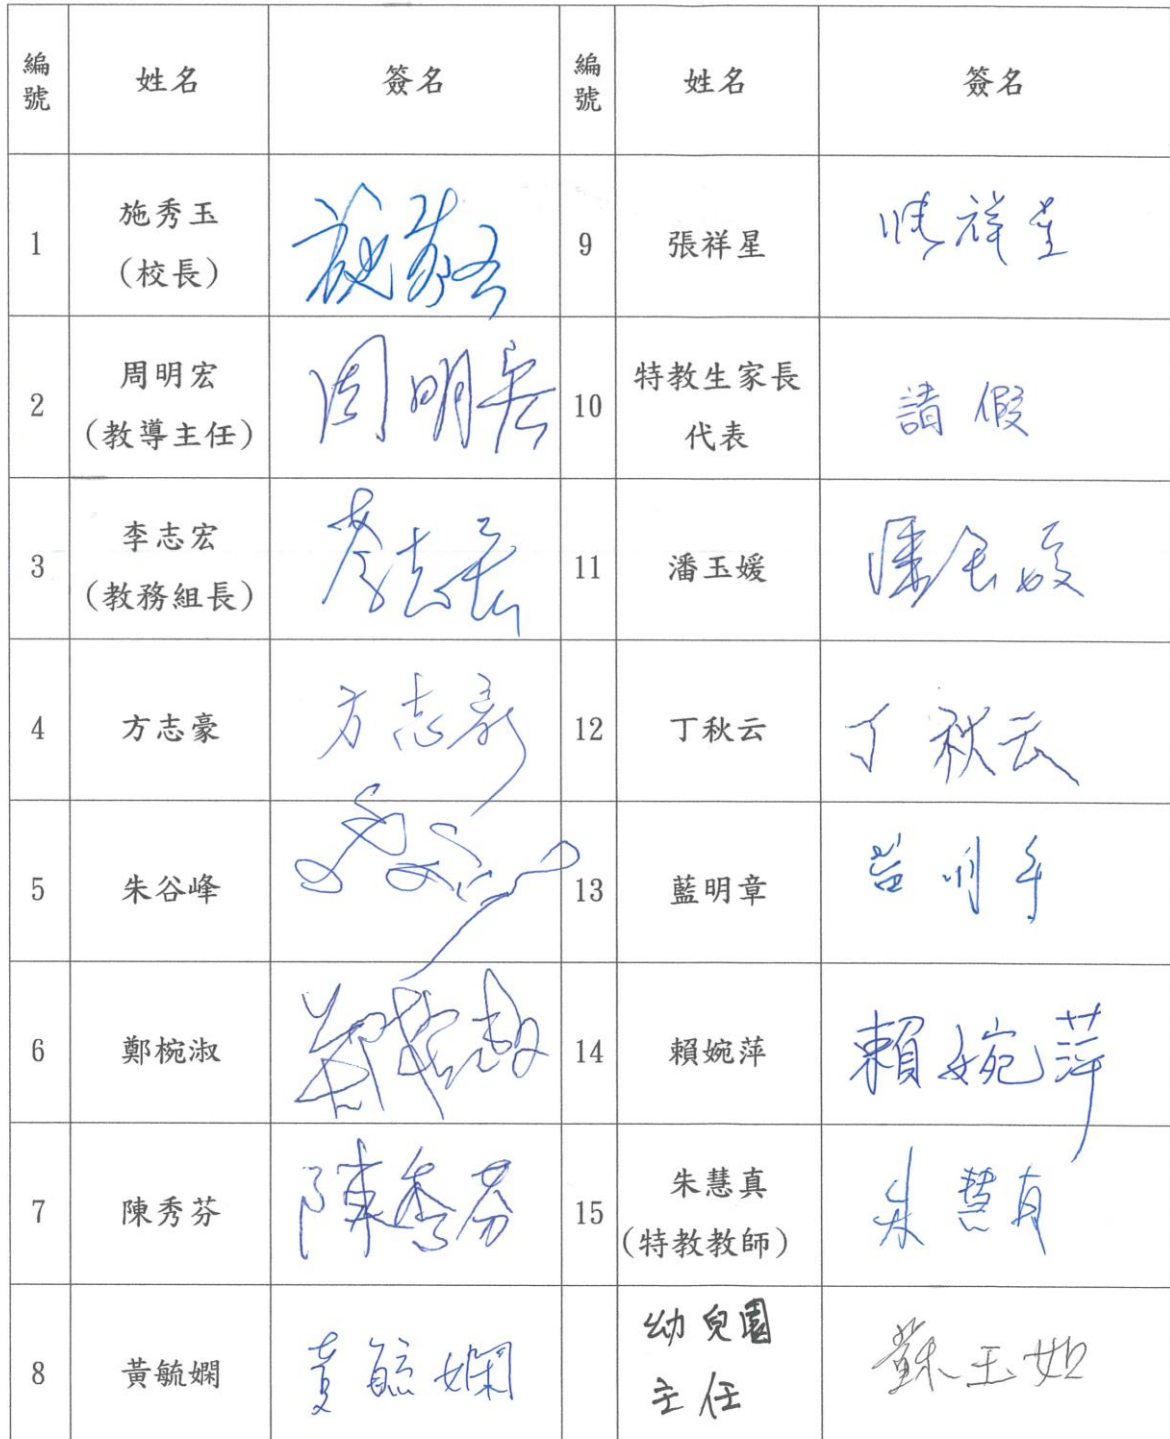 編號 姓名 簽名 編號 姓名 簽名
1 施秀玉(校長) 9 張祥星 張祥星
2 周明宏(教導主任) 周明宏 10 特教生家長代表 請假
3 李志宏(教務組長) 李志宏 11 潘玉媛 潘玉媛
4 方志豪 方志豪 12 丁秋云 丁秋云
5 朱谷峰 13 藍明章
6 鄭椀淑 鄭椀淑 14 賴婉萍 賴婉萍
7 陳秀芬 陳秀芬 15 朱慧真(特教教師) 朱慧真
8 黃毓嫻 黃毓嫻 幼兒園主任 蘇玉如